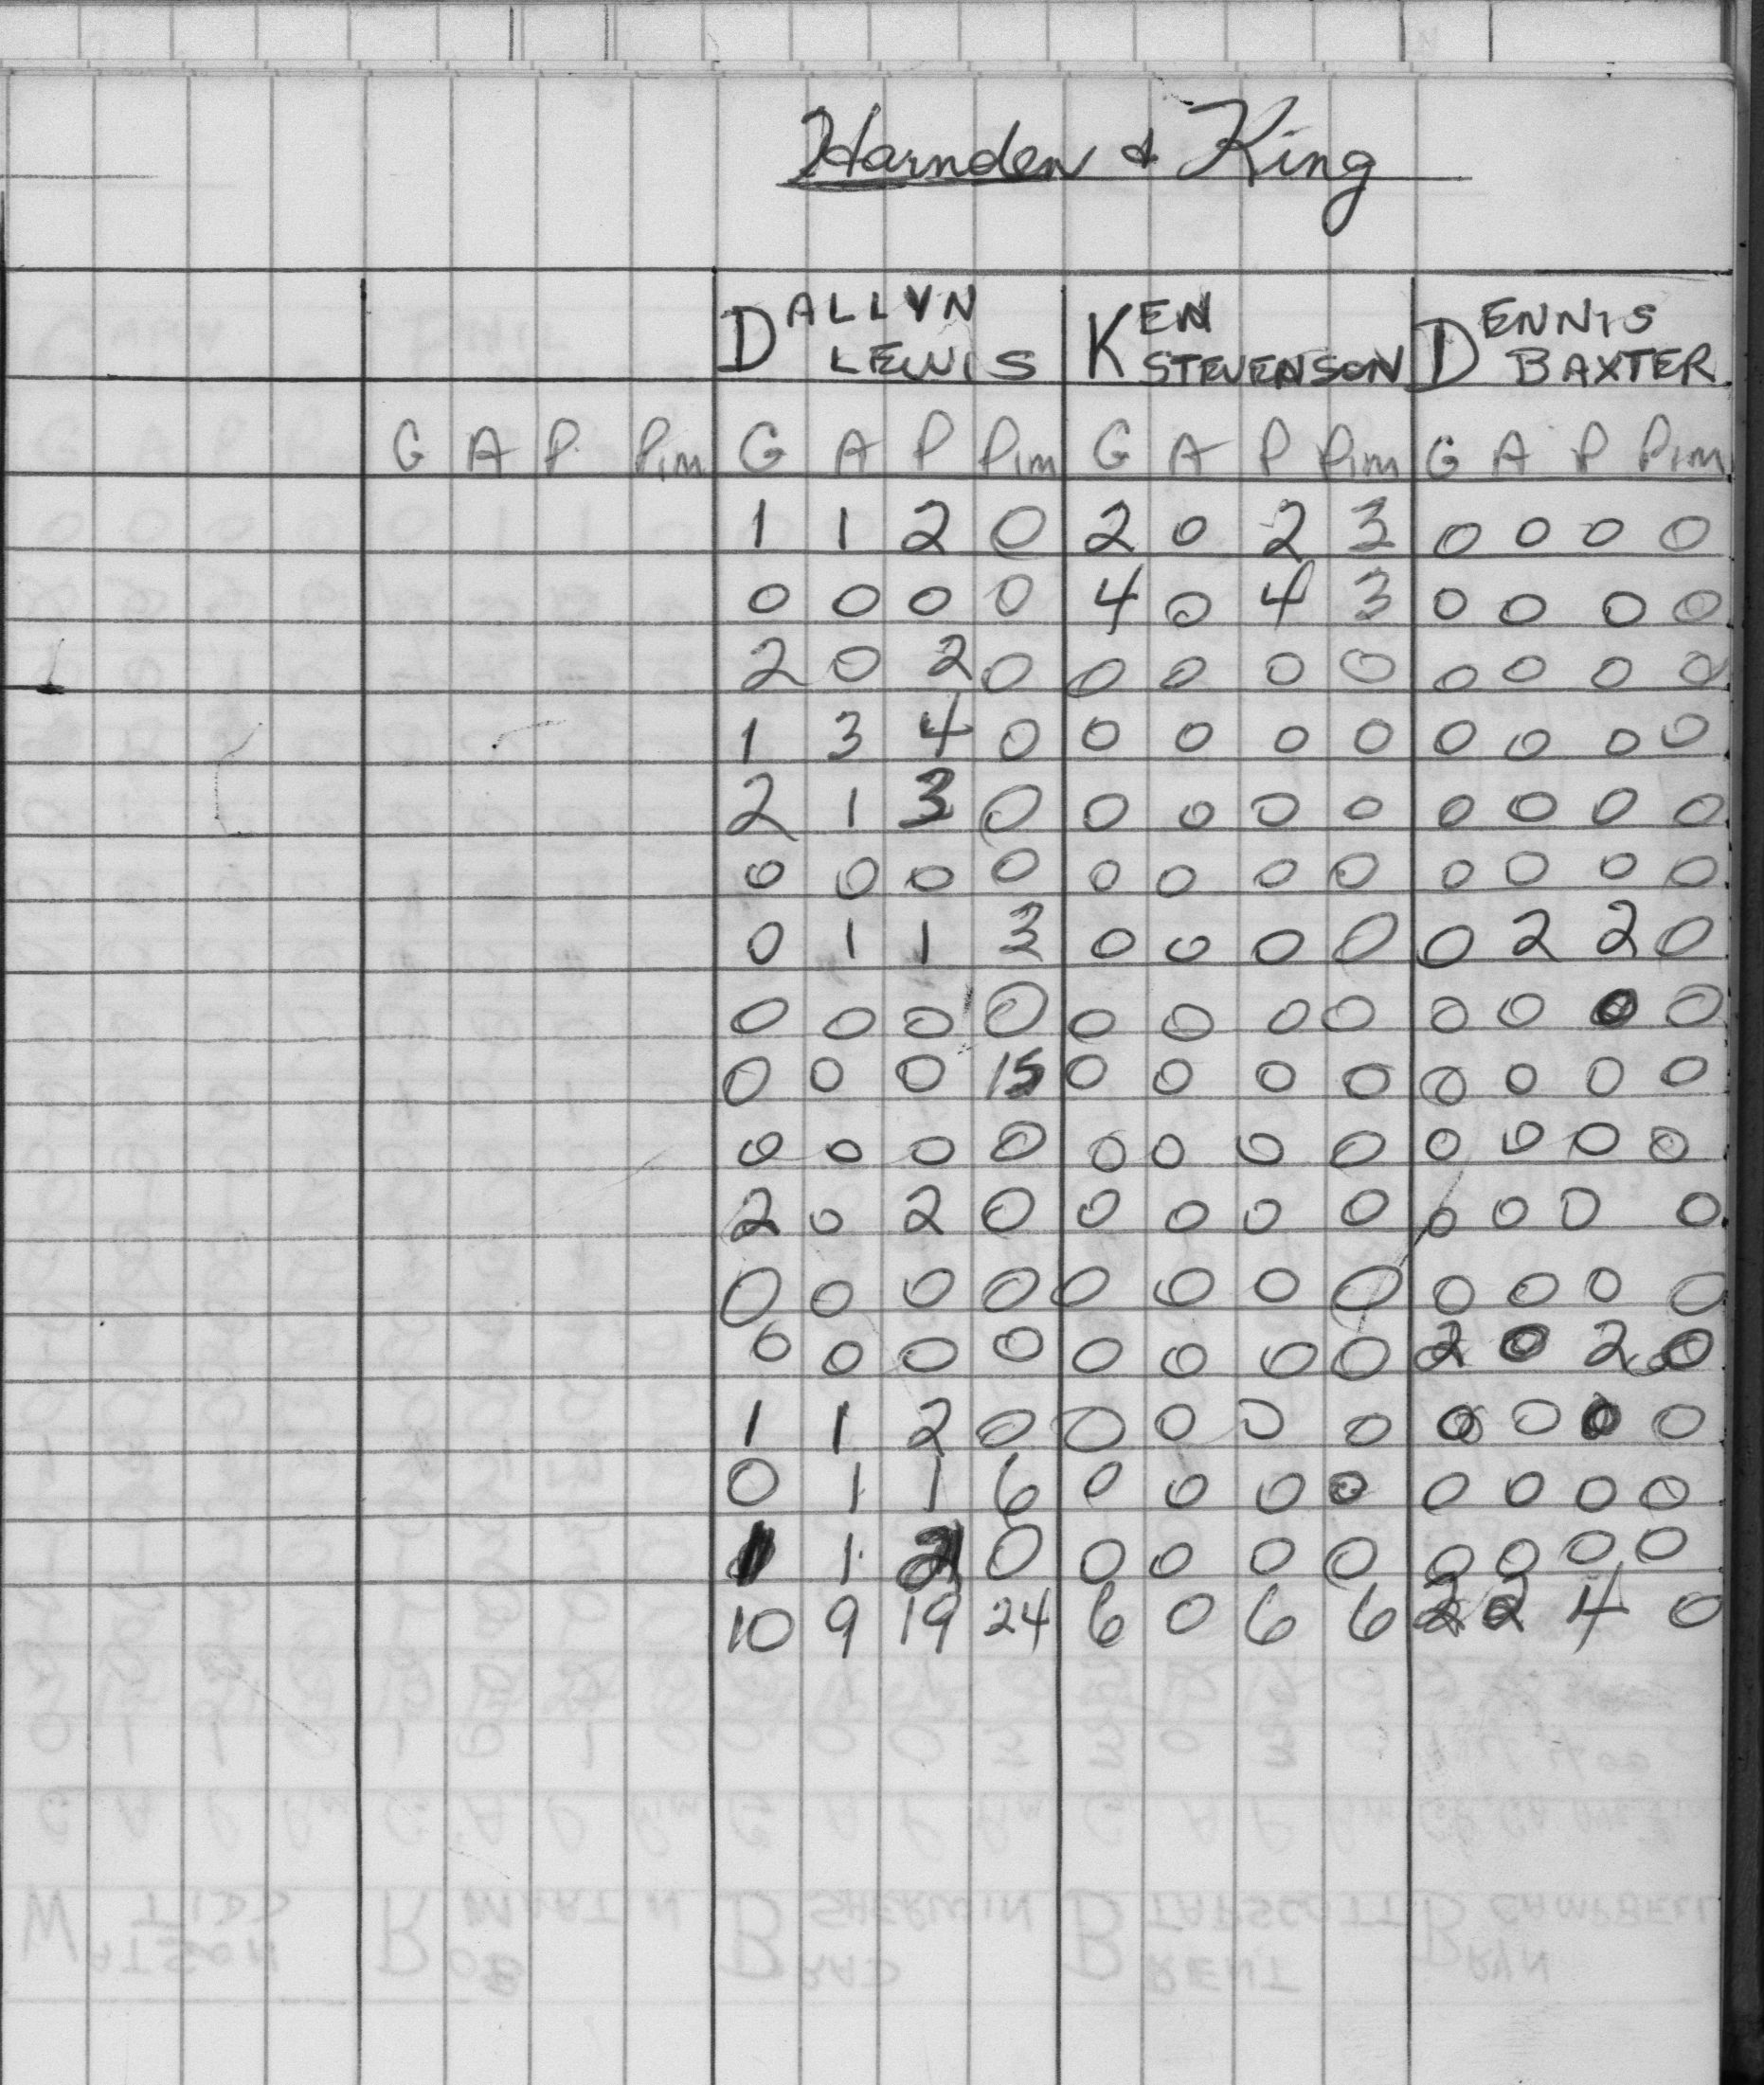 Harnden & King
DALLYN LEWIS KEN STEVENSON DENNIS BAXTER
G A P Pim G A P Pim G A P Pim G A P Pim
1 1 2 0 2 0 2 3 0 0 0 0
0 0 0 0 4 0 4 3 0 0 0 0
2 0 2 0 0 0 0 0 0 0 0 0
1 3 4 0 0 0 0 0 0 0 0 0
2 1 3 0 0 0 0 0 0 0 0 0
0 0 0 0 0 0 0 0 0 0 0 0
0 1 1 3 0 0 0 0 0 2 2 0
0 0 0 0 0 0 0 0 0 0 0 0
0 0 0 15 0 0 0 0 0 0 0 0
0 0 0 0 0 0 0 0 0 0 0 0
2 0 2 0 0 0 0 0 0 0 0 0
0 0 0 0 0 0 0 0 0 0 0 0
0 0 0 0 0 0 0 0 2 0 2 0
1 1 2 0 0 0 0 0 0 0 0 0
0 1 1 6 0 0 0 0 0 0 0 0
1 1 2 0 0 0 0 0 0 0 0 0
10 9 19 24 6 0 6 6 2 2 4 0